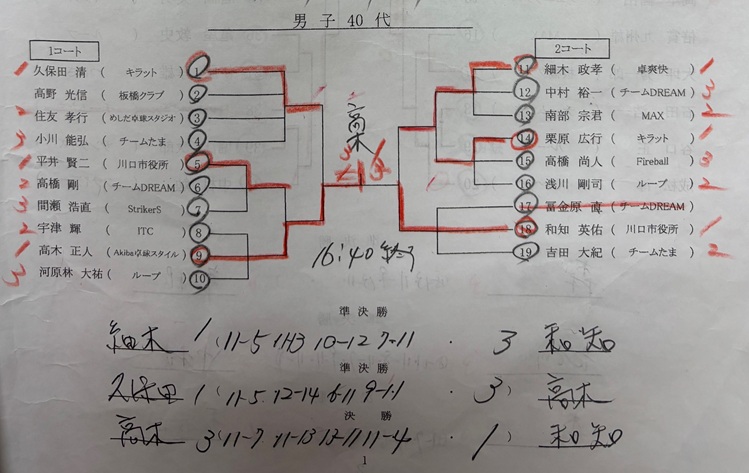 男子40代
1コート
2コート
1 久保田 清 ( キラット ) 1
高野 光信 ( 板橋クラブ ) 2
2 住友 孝行 ( めしだ卓球スタジオ ) 3
3 小川 能弘 ( チームたま ) 4
1 平井 賢二 ( 川口市役所 ) 5
2 高橋 剛 ( チームDREAM ) 6
3 間瀬 浩直 ( StrikerS ) 7
2 宇津 輝 ( ITC ) 8
1 高木 正人 ( Akiba卓球スタイル ) 9
3 河原林 大祐 ( ループ ) 10
11 細木 政孝 ( 卓爽快 ) 1
12 中村 裕一 ( チームDREAM ) 3
13 南部 宗君 ( MAX ) 2
14 栗原 広行 ( キラット ) 1
15 高橋 尚人 ( Fireball ) 3
16 浅川 剛司 ( ループ ) 2
17 冨金原 直 ( チームDREAM )
18 和知 英佑 ( 川口市役所 ) 1
19 吉田 大紀 ( チームたま ) 2
高木
16:40 終了
準決勝
細木 1 ( 11-5 10-12 7-11 · 3 和知
準決勝
久保田 1 ( 11-5 12-14 6-11 9-11 · 3 ) 高木
決勝
高木 3 ( 11-7 11-13 11-4 · 1 ) 和知
1